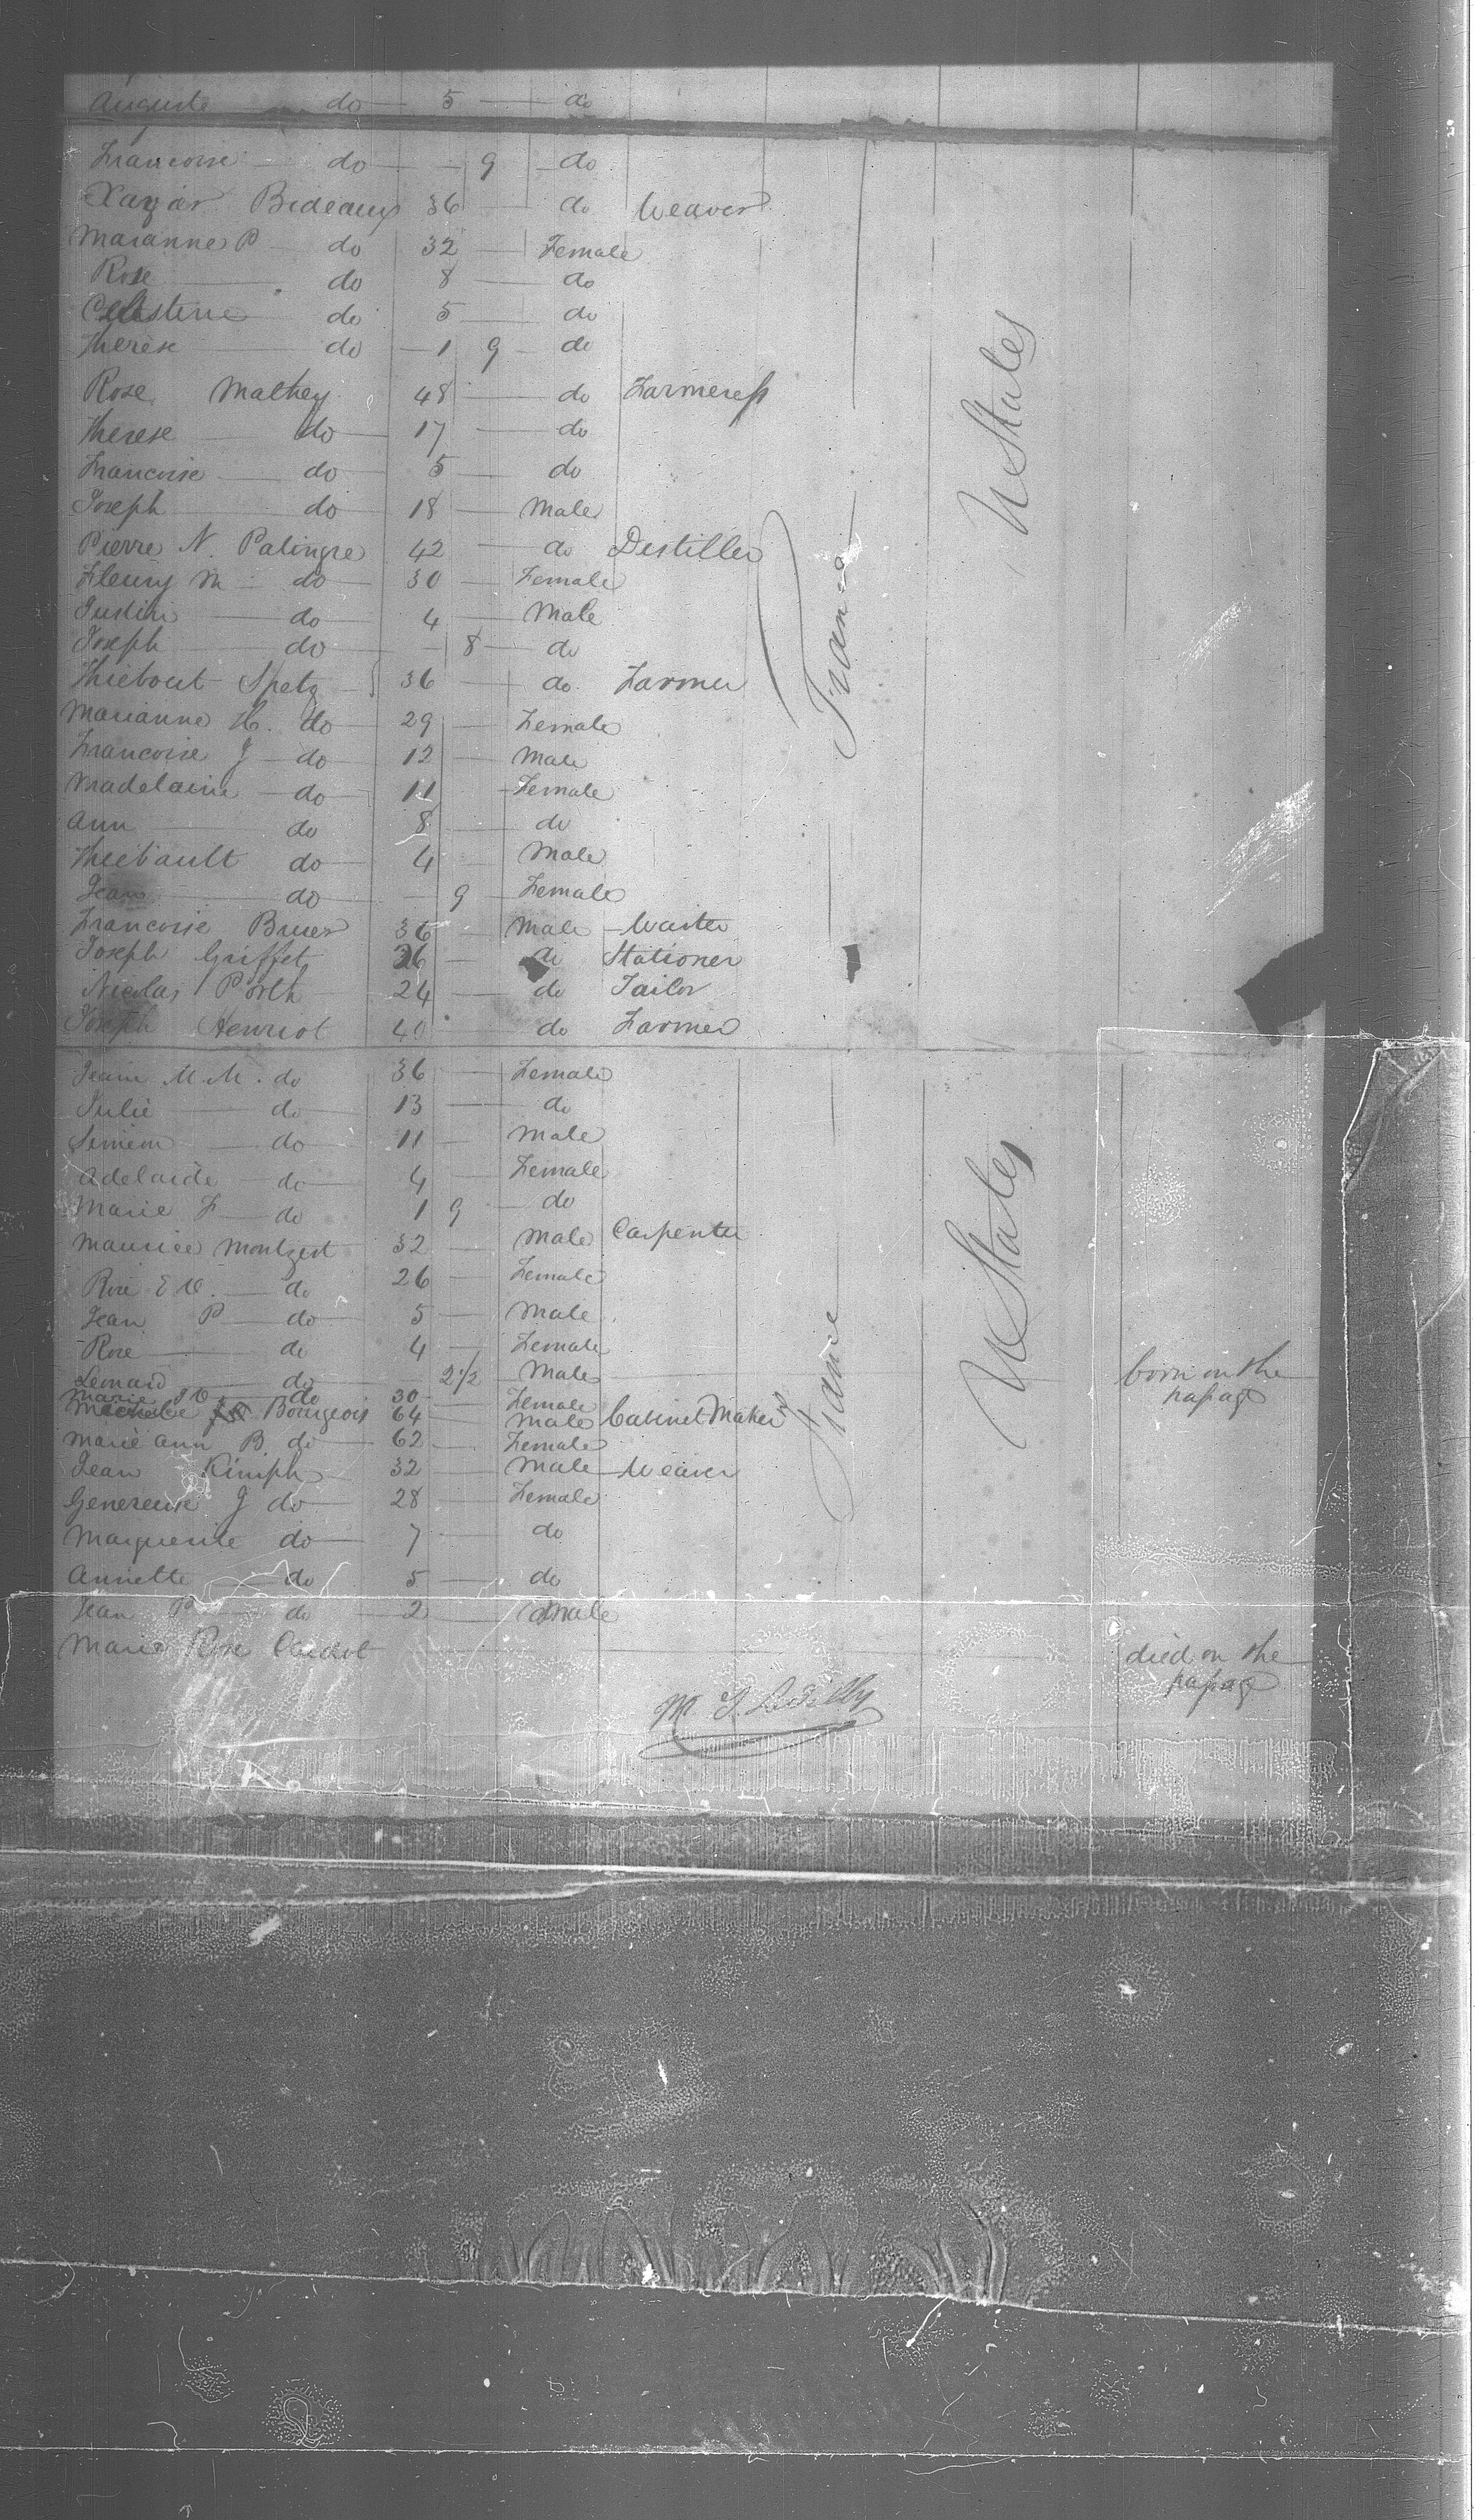 Auguste do 5 do
Francoise do 9 do
Xavier Bideaux 36 do Weaver
Marianne P do 32 Female
Rose do 8 do
Celestine do 5 do
Therese do 1 9 do
Rose Mathey 48 do Farmeress
Therese do 17 do
Francoise do 5 do
Joseph do 18 Male
Pierre N. Palingre 42 do Destiller
Fleury M do 30 Female
Justin do 4 Male
Joseph do 8 do
Thiebout Spetz 36 do Farmer
Marianne H. do 29 Female
Francoise J do 12 Male
Madelaine do 11 Female
Ann do 8 do
Thiebault do 4 Male
Jean do 9 Female
Francoise 36 Male Waiter
Joseph Griffet 36 do Stationer
Nicolas Porth 24 do Tailor
Joseph Henriot 40 do Farmer
France
U States
Jeann M. M. do 36 Female
Julie do 13 do
do 11 Male
Adelaide do 4 Female
Marie F do 1 9 do
Maurice 32 Male Carpenter
Rose do 26 Female
Jean P do 5 Male
Rose do 4 Female
Lenard do 2 1/2 Male born on the passage
Marie do 30 Female
Bourgeois 64 Male Cabinet Maker
Marie Ann B. do 62 Female
Jean Kimph 32 Male Weaver
Genereuse J do 28 Female
Marguerite do 7 do
Annette do 5 do
Jean P do 2 Male
Marie Rose died on the passage
France
U States